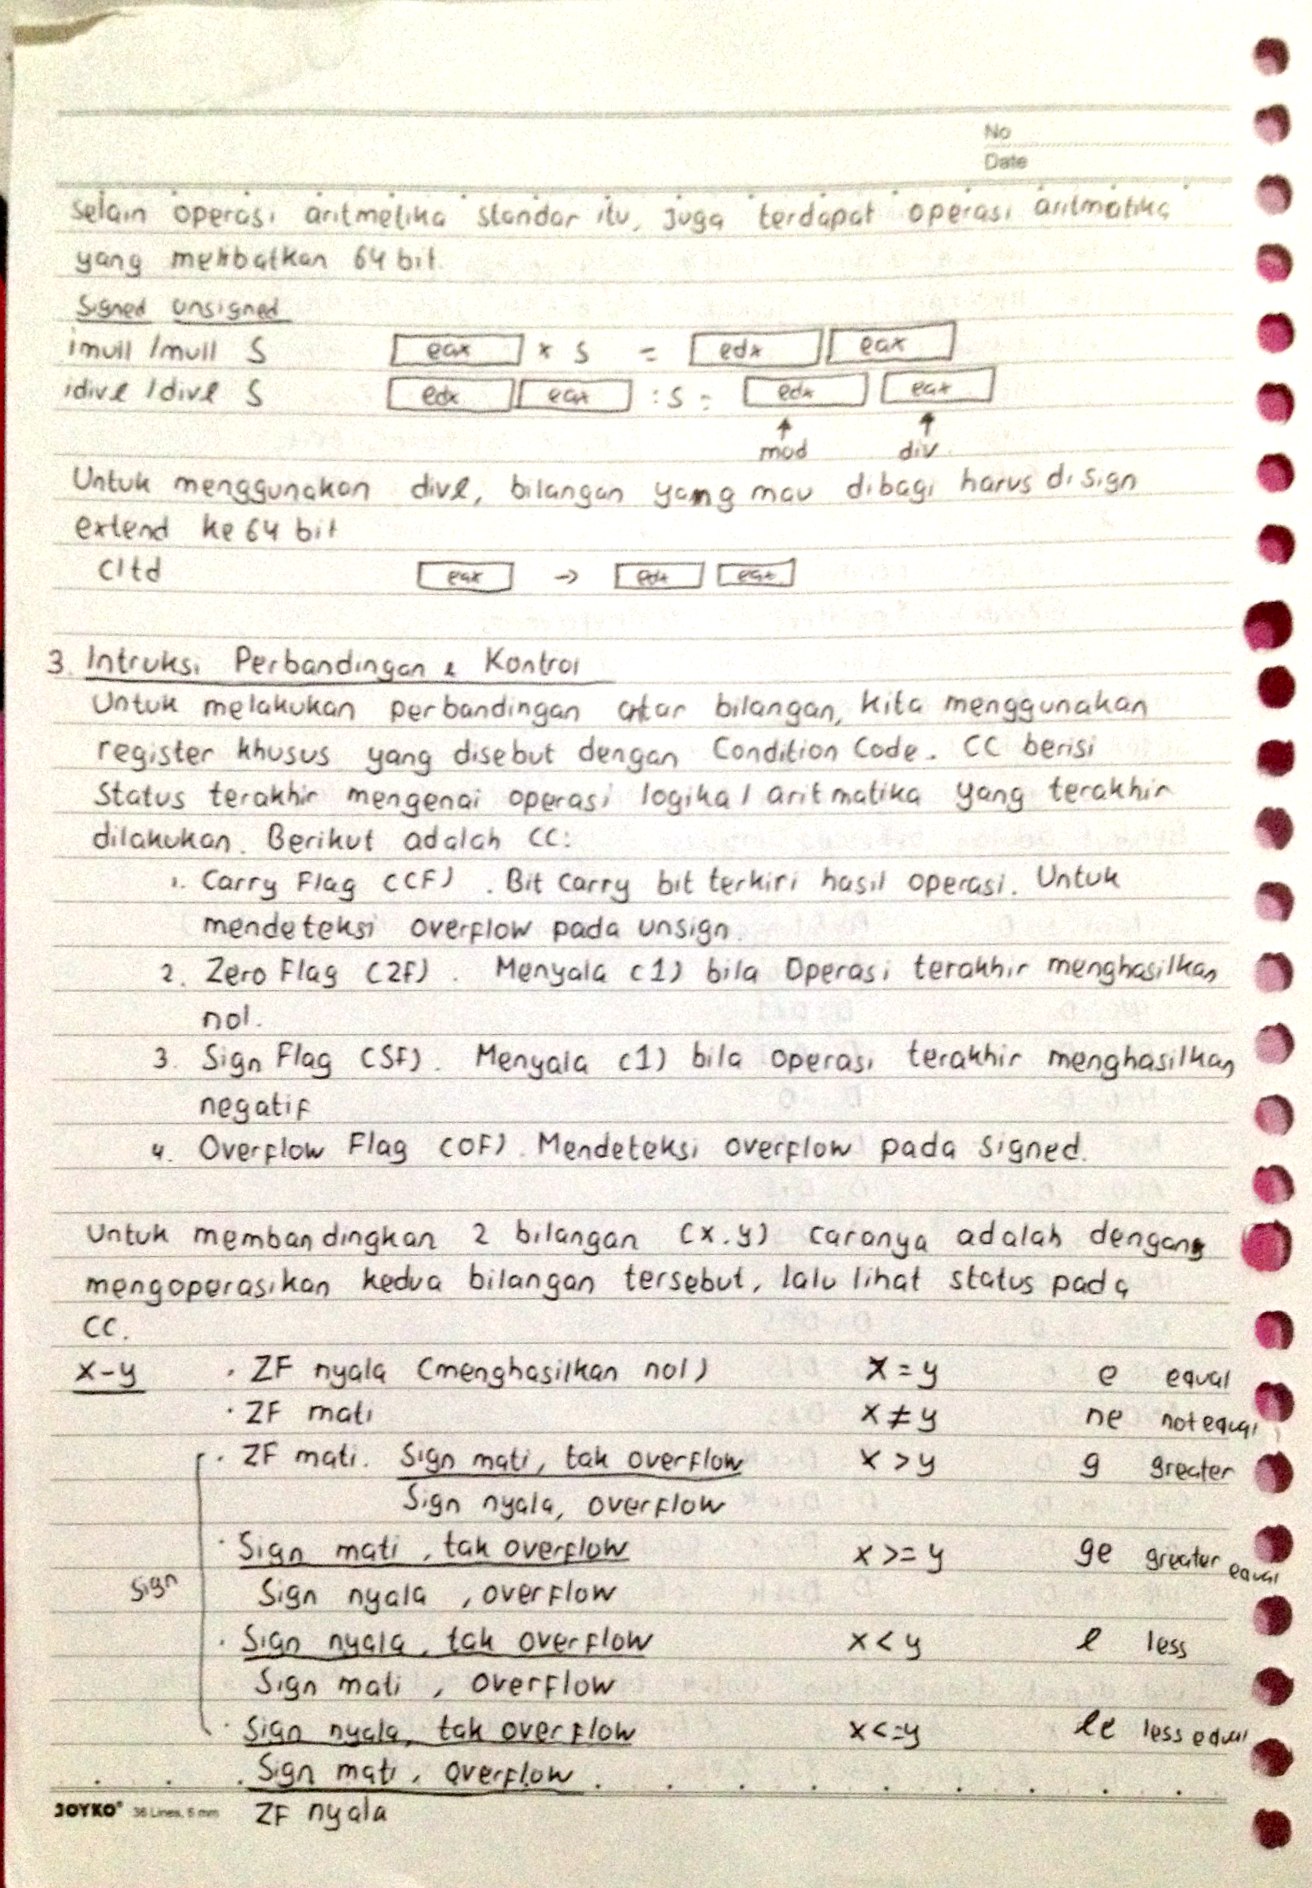 No
Date
Selain operasi aritmetika standar itu, juga terdapat operasi aritmatika
yang melibatkan 64 bit.
Signed unsigned
imull /mull S eax * S = edx eax
idivl /divl S edx eax : S = edx eax
↑ ↑
mod div
Untuk menggunakan divl, bilangan yang mau dibagi harus di sign
extend ke 64 bit
Cltd eax → edx eax
3. Intruksi Perbandingan & Kontrol
Untuk melakukan perbandingan antar bilangan, kita menggunakan
register khusus yang disebut dengan Condition Code. CC berisi
Status terakhir mengenai operasi logika / aritmatika yang terakhir
dilakukan. Berikut adalah CC:
1. Carry Flag (CF). Bit carry bit terkiri hasil operasi. Untuk
mendeteksi overflow pada unsign.
2. Zero Flag (ZF). Menyala (1) bila Operasi terakhir menghasilkan
nol.
3. Sign Flag (SF). Menyala (1) bila operasi terakhir menghasilkan
negatif
4. Overflow Flag (OF). Mendeteksi overflow pada signed.
Untuk membandingkan 2 bilangan (x,y) caranya adalah dengan
mengoperasikan kedua bilangan tersebut, lalu lihat status pada
CC.
x-y · ZF nyala (menghasilkan nol) x=y e equal
· ZF mati x≠y ne not equal
· ZF mati. Sign mati, tak overflow x>y g greater
Sign nyala, overflow
· Sign mati, tak overflow x>=y ge greater equal
Sign Sign nyala, overflow
· Sign nyala, tak overflow x<y l less
Sign mati, overflow
· Sign nyala, tak overflow x<=y le less equal
Sign mati, overflow
JOYKO 36 Lines, 6 mm ZF nyala